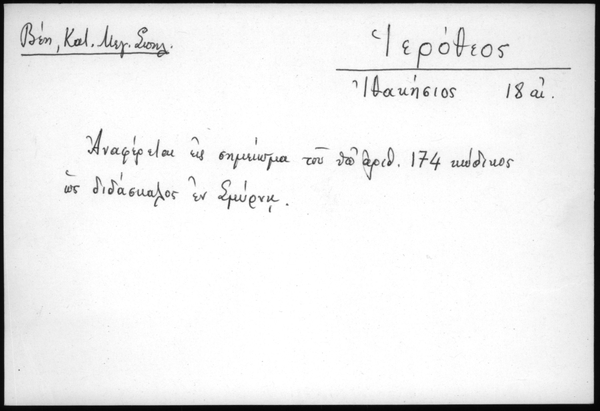 Βέη, Κατ. Μεγ. Σπηλ.
Ἱερόθεος
Ἰθακήσιος 18 αἰ.
Ἀναφέρεται εἰς σημείωμα τοῦ ὑπ' ἀριθ. 174 κώδικος
ὡς διδάσκαλος ἐν Σμύρνῃ.